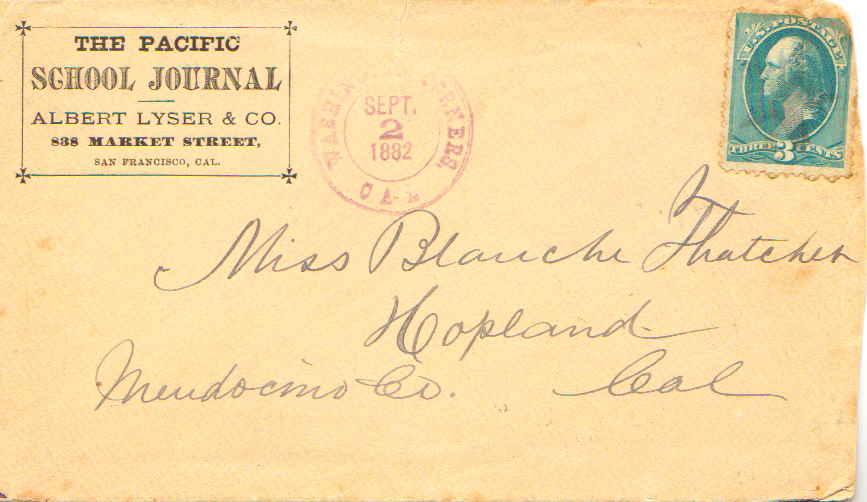 THE PACIFIC
SCHOOL JOURNAL
ALBERT LYSER & CO.
838 MARKET STREET,
SAN FRANCISCO, CAL.
WASHINGTON CORNERS,
SEPT.
2
1882
CAL
U.S. POSTAGE
THREE 3 CENTS
Miss Blanche Thatcher
Hopland
Mendocino Co. Cal